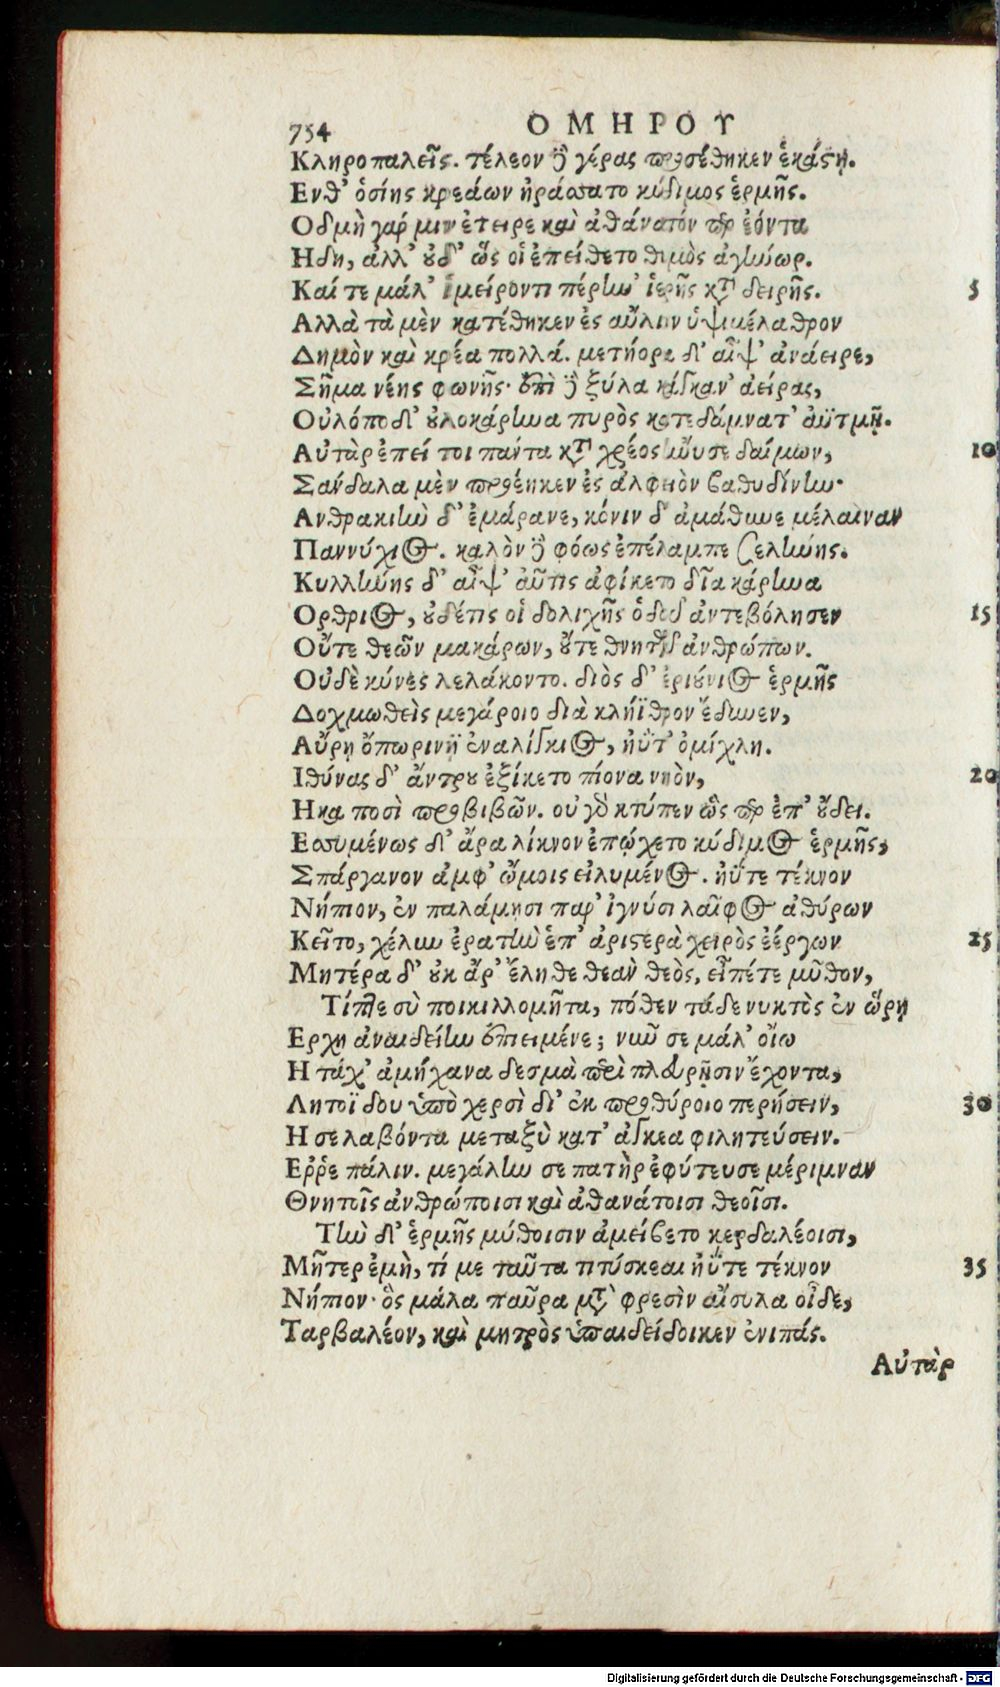 754 ΟΜΗΡΟΥ
Κληροπαλεῖς. τέλεον δὲ γέρας προσέθηκεν ἑκάστῃ.
Ενθ' ὁσίης κρεάων ἠράσσατο κύδιμος ἑρμῆς.
Οδμὴ γάρ μιν ἔτειρε καὶ ἀθάνατόν περ ἐόντα
Ηδη, ἀλλ' οὐδ' ὥς οἱ ἐπείθετο θυμὸς ἀγήνωρ.
Καί τε μάλ' ἱμείροντι πέρην' ἱερῆς κατὰ δειρῆς. 5
Αλλὰ τὰ μὲν κατέθηκεν ἐς αὔλιον ὑψιμέλαθρον
Δημὸν καὶ κρέα πολλά. μετήορα δ' αἶψ' ἀνάειρε,
Σῆμα νέης φωνῆς· ἐπὶ δὲ ξύλα κάγκαν' ἀείρας,
Οὐλόποδ' οὐλοκάρηνα πυρὸς κατεδάμνατ' ἀϋτμῇ.
Αὐτὰρ ἐπεί τοι πάντα κατὰ χρέος ἤνυσε δαίμων, 10
Σάνδαλα μὲν προέηκεν ἐς ἀλφειὸν βαθυδίνην·
Ανθρακιὴν δ' ἐμάρανε, κόνιν δ' ἀμάθυνε μέλαιναν
Παννύχιος. καλὸν δὲ φόως ἐπέλαμπε σελήνης.
Κυλλήνης δ' αἶψ' αὖτις ἀφίκετο δῖα κάρηνα
Ορθριος, οὐδέ τις οἱ δολιχῆς ὁδοῦ ἀντεβόλησεν 15
Οὔτε θεῶν μακάρων, οὔτε θνητῶν ἀνθρώπων.
Οὐδὲ κύνες λελάκοντο. διὸς δ' ἐριούνιος ἑρμῆς
Δοχμωθεὶς μεγάροιο διὰ κλήϊθρον ἔδυνεν,
Αὔρῃ ὀπωρινῇ ἐναλίγκιος, ἠΰτ' ὀμίχλη.
Ιθύνας δ' ἄντρου ἐξίκετο πίονα νηὸν, 20
Ηκα ποσὶ προβιβῶν. οὐ γὰρ κτύπεν ὥς περ ἐπ' οὔδει.
Εσσυμένως δ' ἄρα λίκνον ἐπῴχετο κύδιμος ἑρμῆς,
Σπάργανον ἀμφ' ὤμοις εἰλυμένος. ἠΰτε τέκνον
Νήπιον, ἐν παλάμῃσι παρ' ἰγνύσι λαῖφος ἀθύρων
Κεῖτο, χέλυν ἐρατὴν ἐπ' ἀριστερὰ χειρὸς ἐέργων 25
Μητέρα δ' οὐκ ἄρ' ἔληθε θεὰν θεὸς, εἶπέ τε μῦθον,
Τίπτε σὺ ποικιλλομῆτα, πόθεν τάδε νυκτὸς ἐν ὥρῃ
Ερχῃ ἀναιδείην ἐπιειμένε; νῦν σε μάλ' οἴω
Η τάχ' ἀμήχανα δεσμὰ περὶ πλευρῇσιν ἔχοντα,
Λητοΐδου ὑπὸ χερσὶ δι' ἐκ προθύροιο περήσειν, 30
Η σε λαβόντα μεταξὺ κατ' ἄγκεα φιλητεύσειν.
Ερῤε πάλιν. μεγάλην σε πατὴρ ἐφύτευσε μέριμναν
Θνητοῖς ἀνθρώποισι καὶ ἀθανάτοισι θεοῖσι.
Τὴν δ' ἑρμῆς μύθοισιν ἀμείβετο κερδαλέοισι,
Μῆτερ ἐμὴ, τί με ταῦτα τιτύσκεαι ἠΰτε τέκνον 35
Νήπιον· ὃς μάλα παῦρα μετὰ φρεσὶν αἴσυλα οἶδε,
Ταρβαλέον, καὶ μητρὸς ὑπαιδείδοικεν ἐνιπάς.
Αὐτὰρ
Digitalisierung gefördert durch die Deutsche Forschungsgemeinschaft - DFG